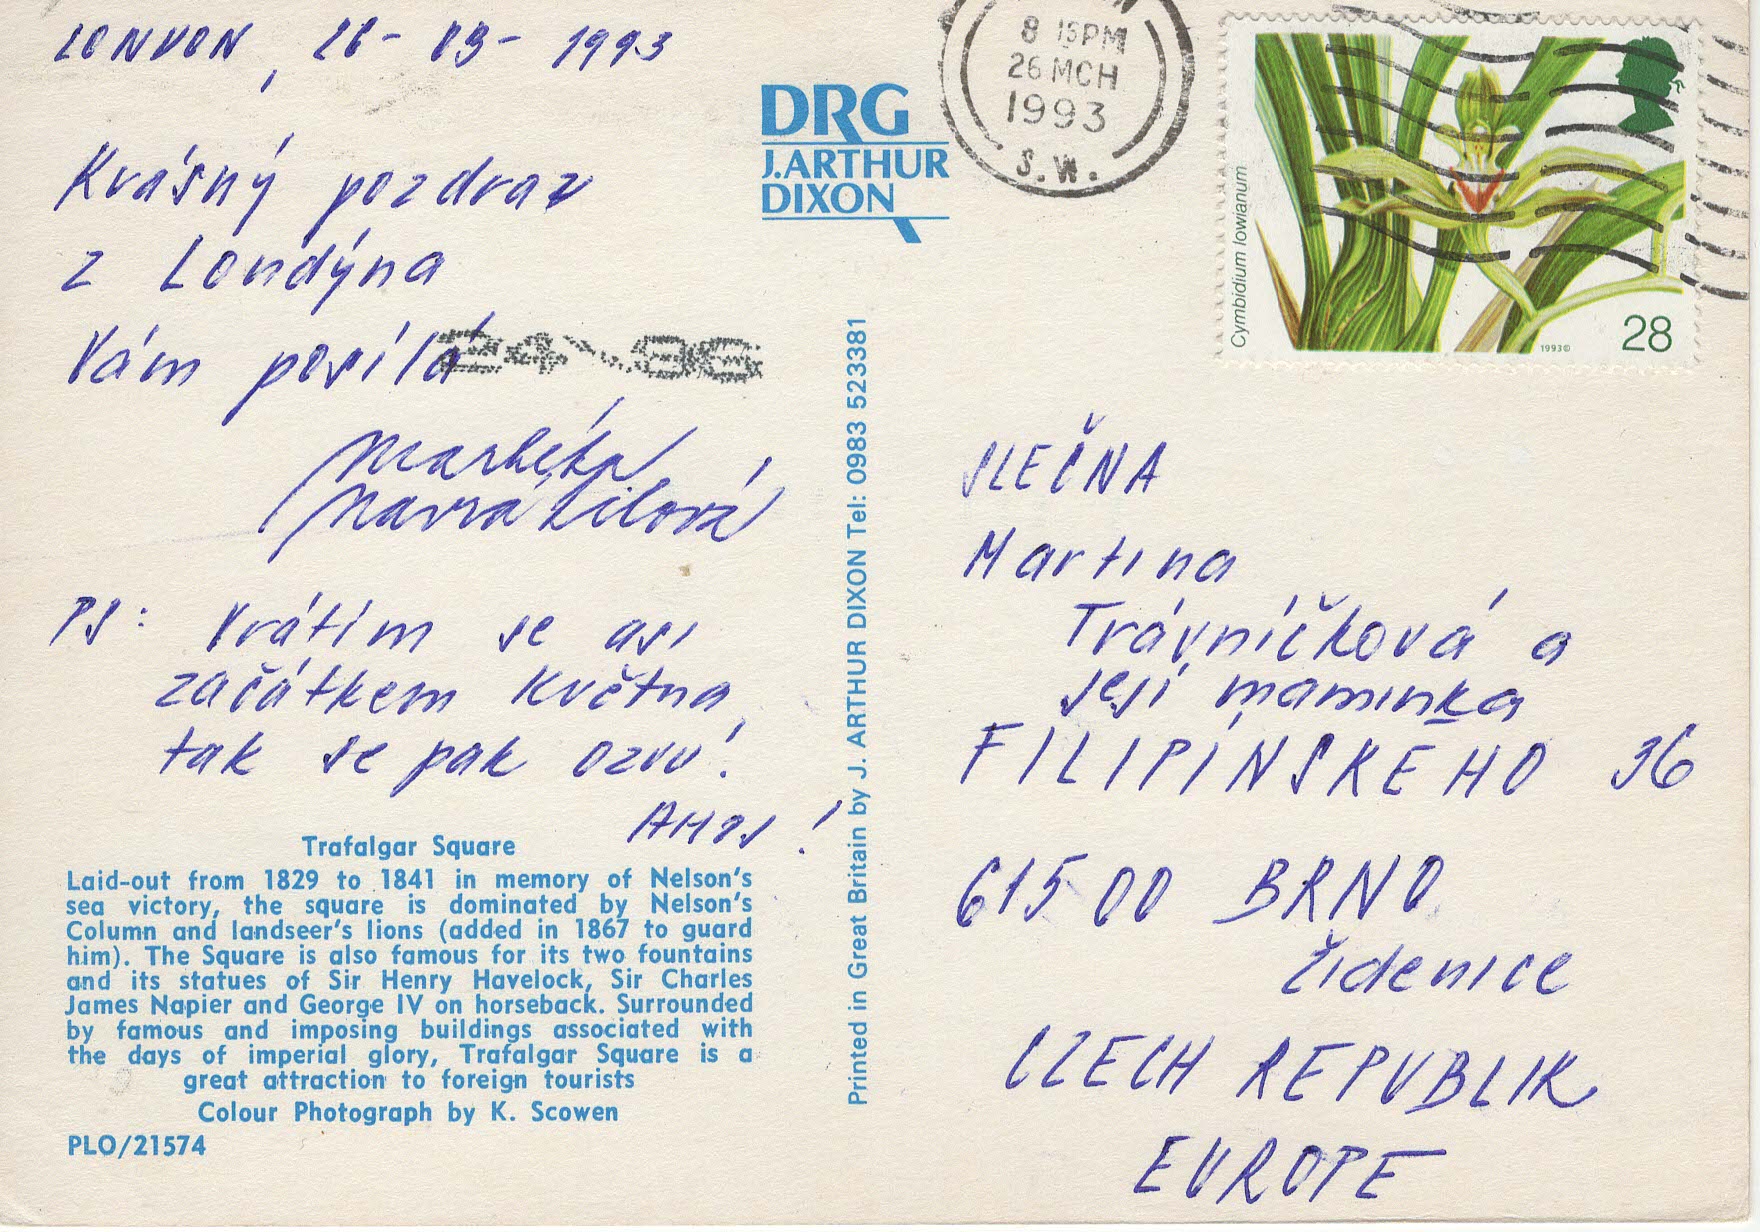 LONDON, 26- 03- 1993
Krásný pozdrav
z Londýna
Vám posílá
Markéta
Navrátilová
PS: Vrátím se asi
začátkem května,
tak se pak ozvu!
AHOJ!
Trafalgar Square
Laid-out from 1829 to 1841 in memory of Nelson's
sea victory, the square is dominated by Nelson's
Column and landseer's lions (added in 1867 to guard
him). The Square is also famous for its two fountains
and its statues of Sir Henry Havelock, Sir Charles
James Napier and George IV on horseback. Surrounded
by famous and imposing buildings associated with
the days of imperial glory, Trafalgar Square is a
great attraction to foreign tourists
Colour Photograph by K. Scowen
PLO/21574
DRG
J.ARTHUR
DIXON
Printed in Great Britain by J. ARTHUR DIXON Tel: 0983 523381
8 15PM
26 MCH
1993
S.W.
Cymbidium lowianum
1993©
28
SLEČNA
Martina
Trávníčková a
její maminka
FILIPÍNSKÉHO 36
615 00 BRNO
Židenice
CZECH REPUBLIK
EUROPE